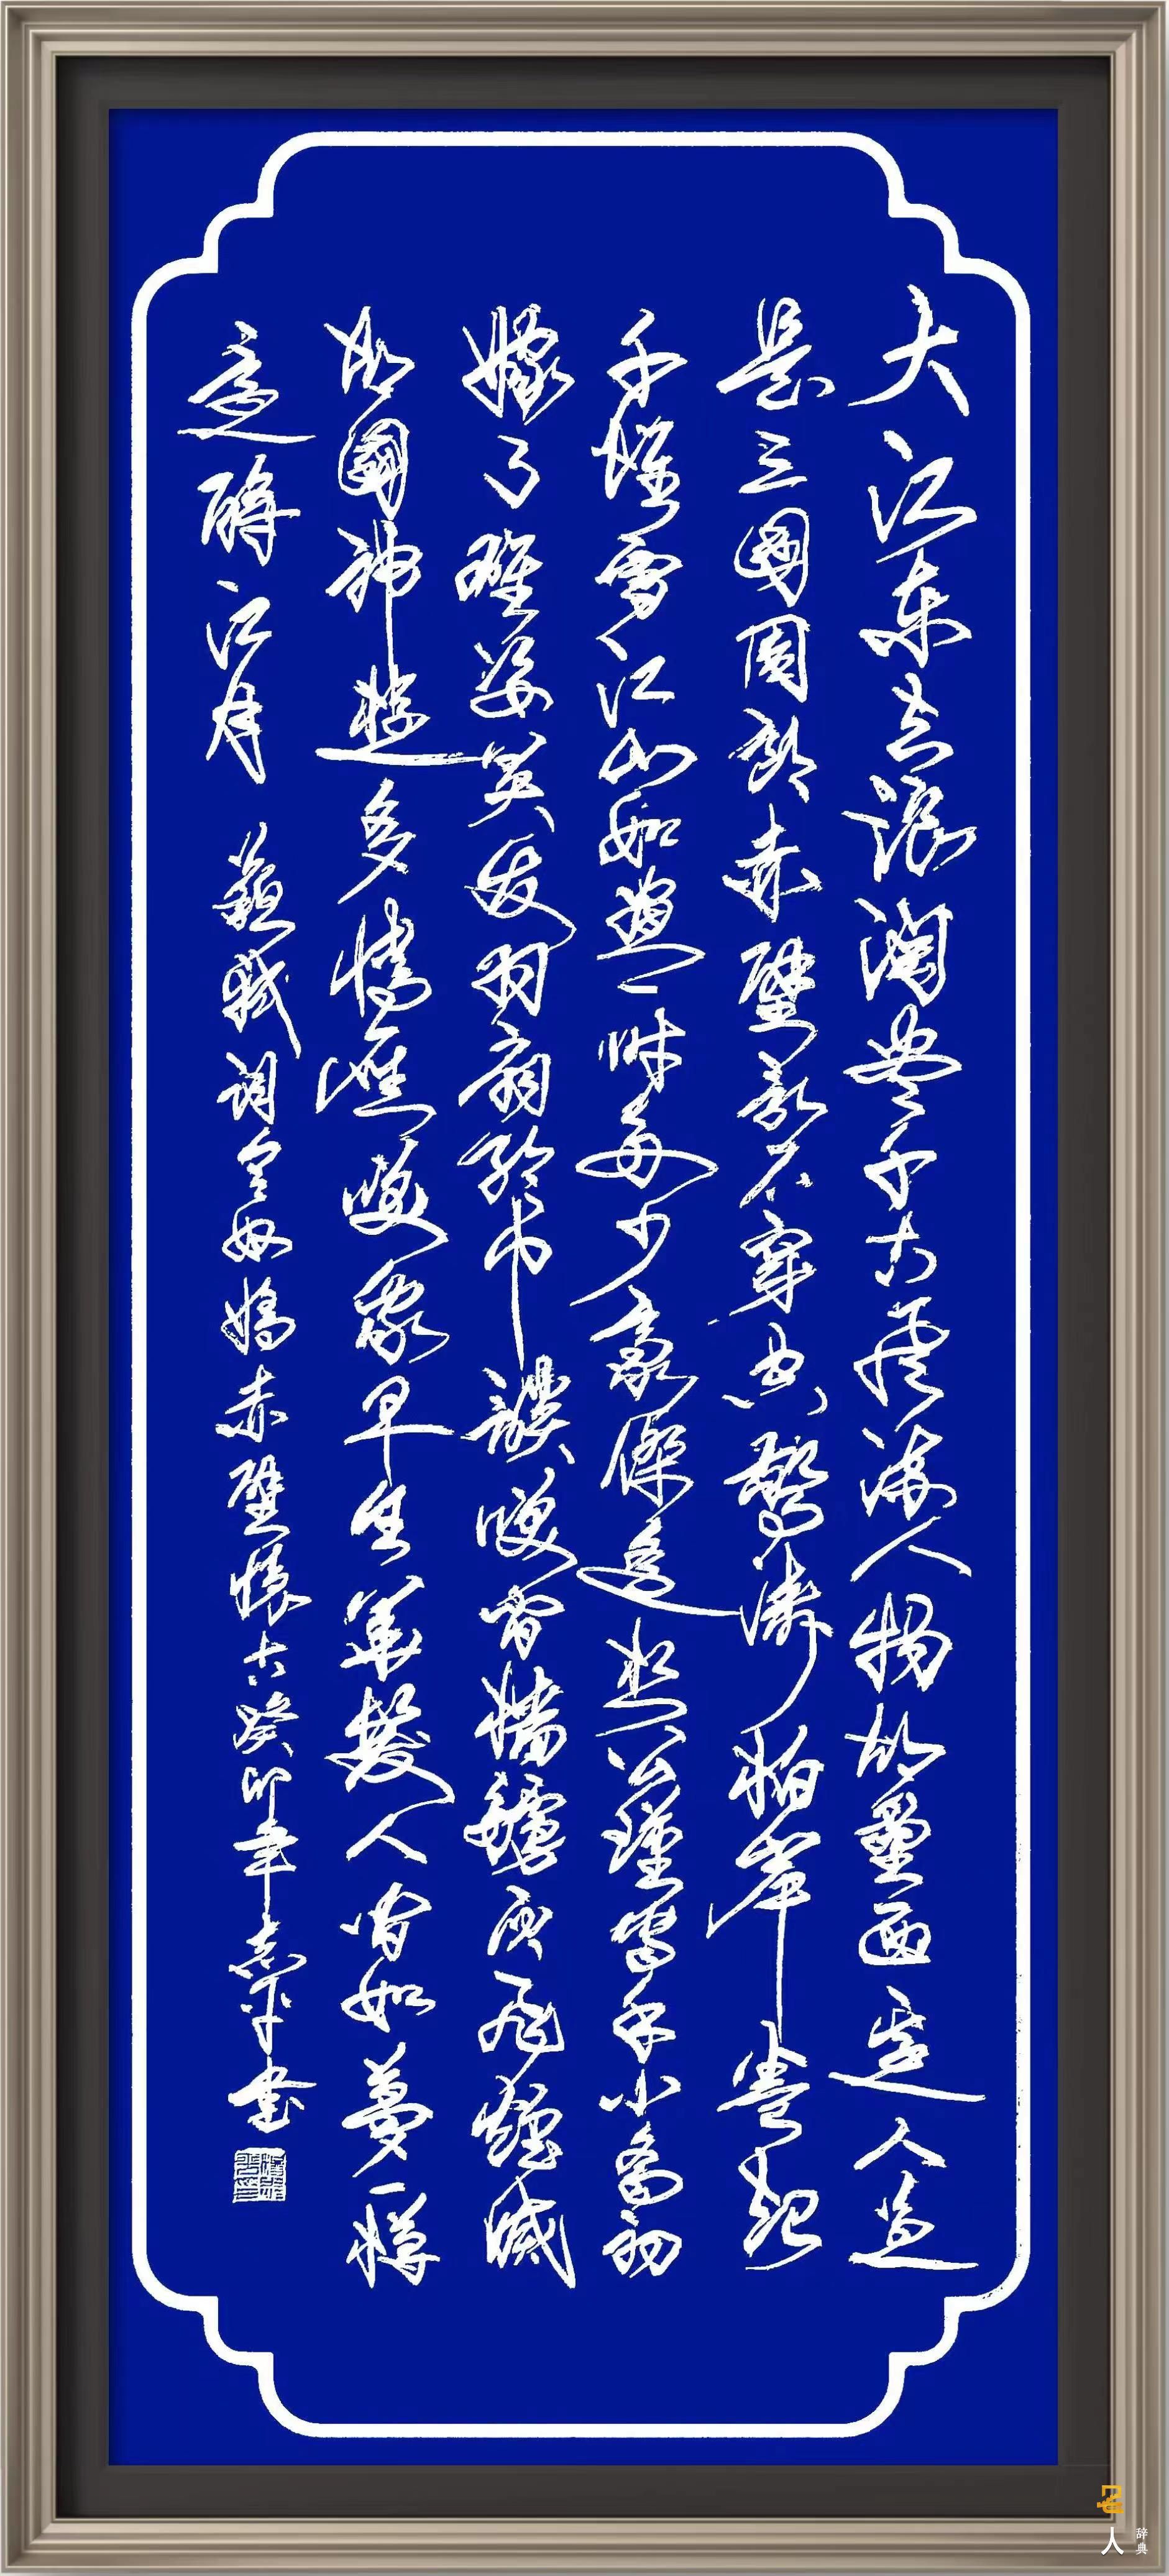 大江東去浪淘盡千古風流人物故壘西邊人道
是三國周郎赤壁亂石穿空驚濤拍岸卷起
千堆雪江山如畫一時多少豪傑遙想公瑾當年小喬初
嫁了雄姿英发羽扇綸巾談笑間檣艣灰飛煙滅
故國神遊多情應笑我早生華髮人間如夢一樽
還酹江月 蘇軾詞念奴嬌赤壁懷古癸卯年志平書
名人辞典